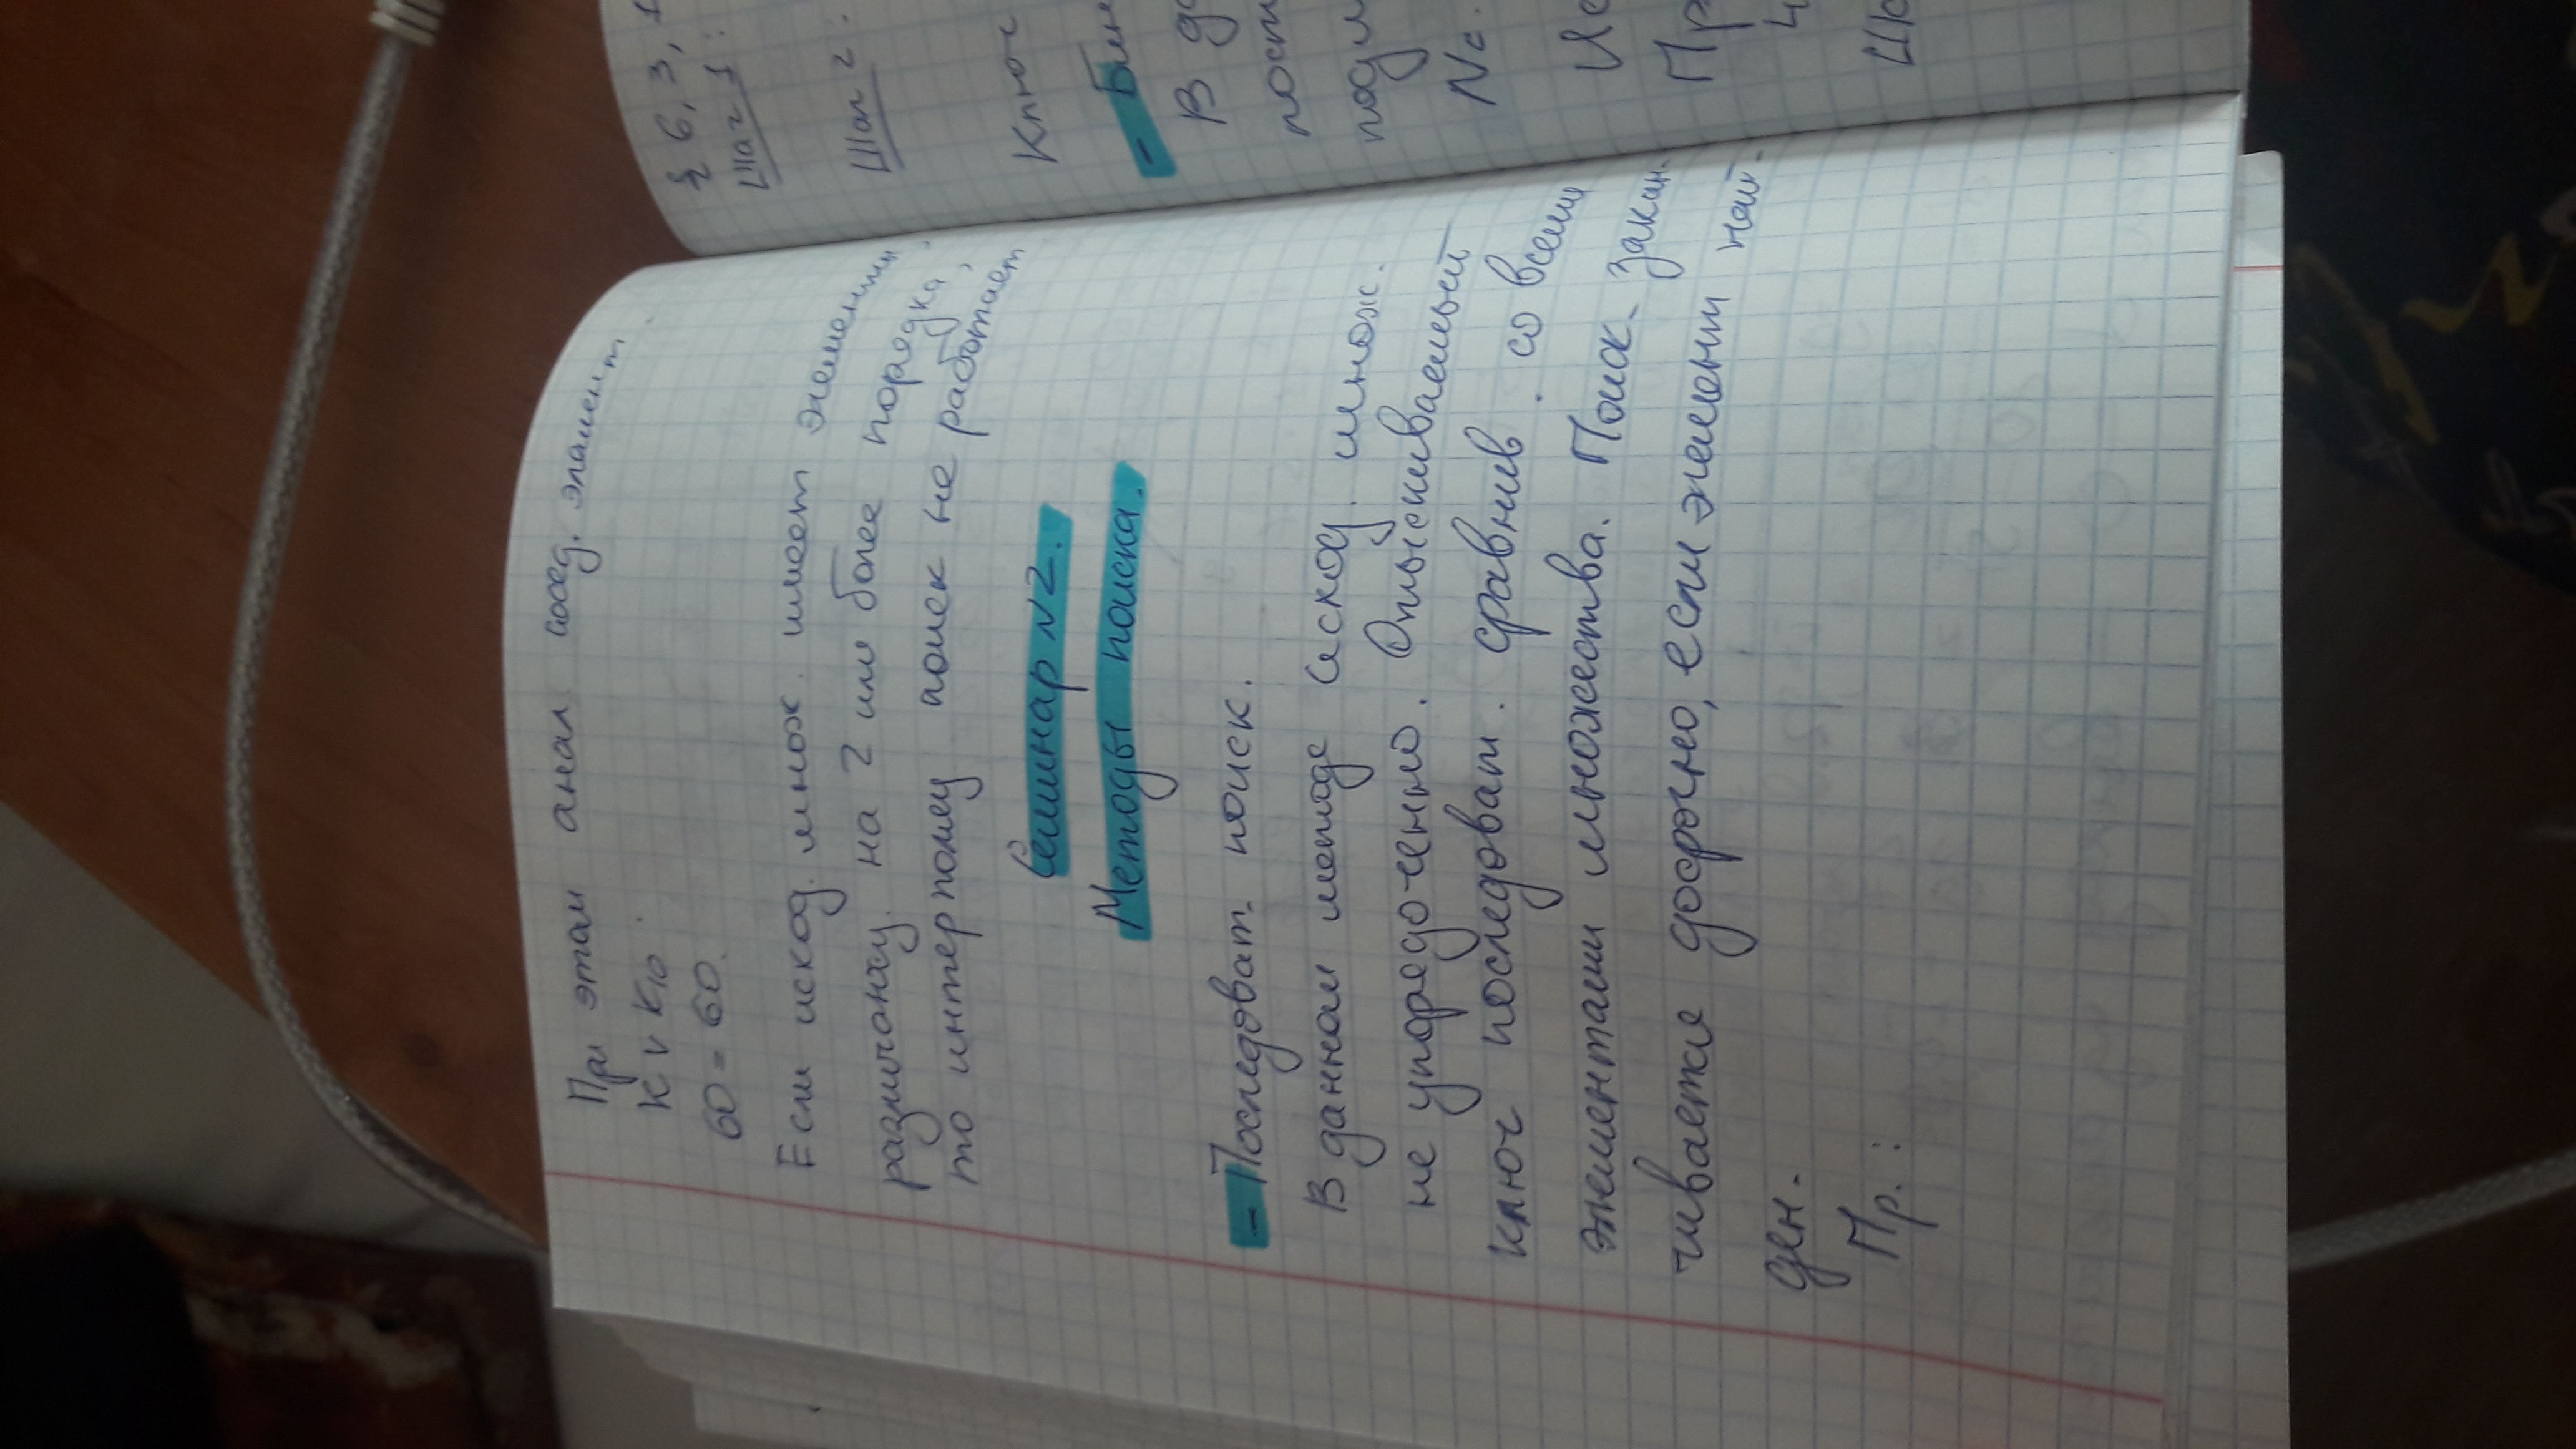 При этом анал. сосед. элемент.
K v K10
60 = 60.
Если исход. множ. имеет элементы,
различающ. на 2 или более порядка,
то интерполяц поиск не работает
Семинар N2.
Методы поиска.
- Последоват. поиск.
В данном методе исход. множ.
не упорядоченно. Отыскиваемый
ключ последоват. сравнив. со всеми
элементами множества. Поиск закан-
чивается досрочно, если элемент най-
ден.
Пр. :
{ 6, 3, 1
Шаг 1 :
Шаг 2 :
Ключ
- Бин
В да
пост
подм
Nc.
Ис
Пр